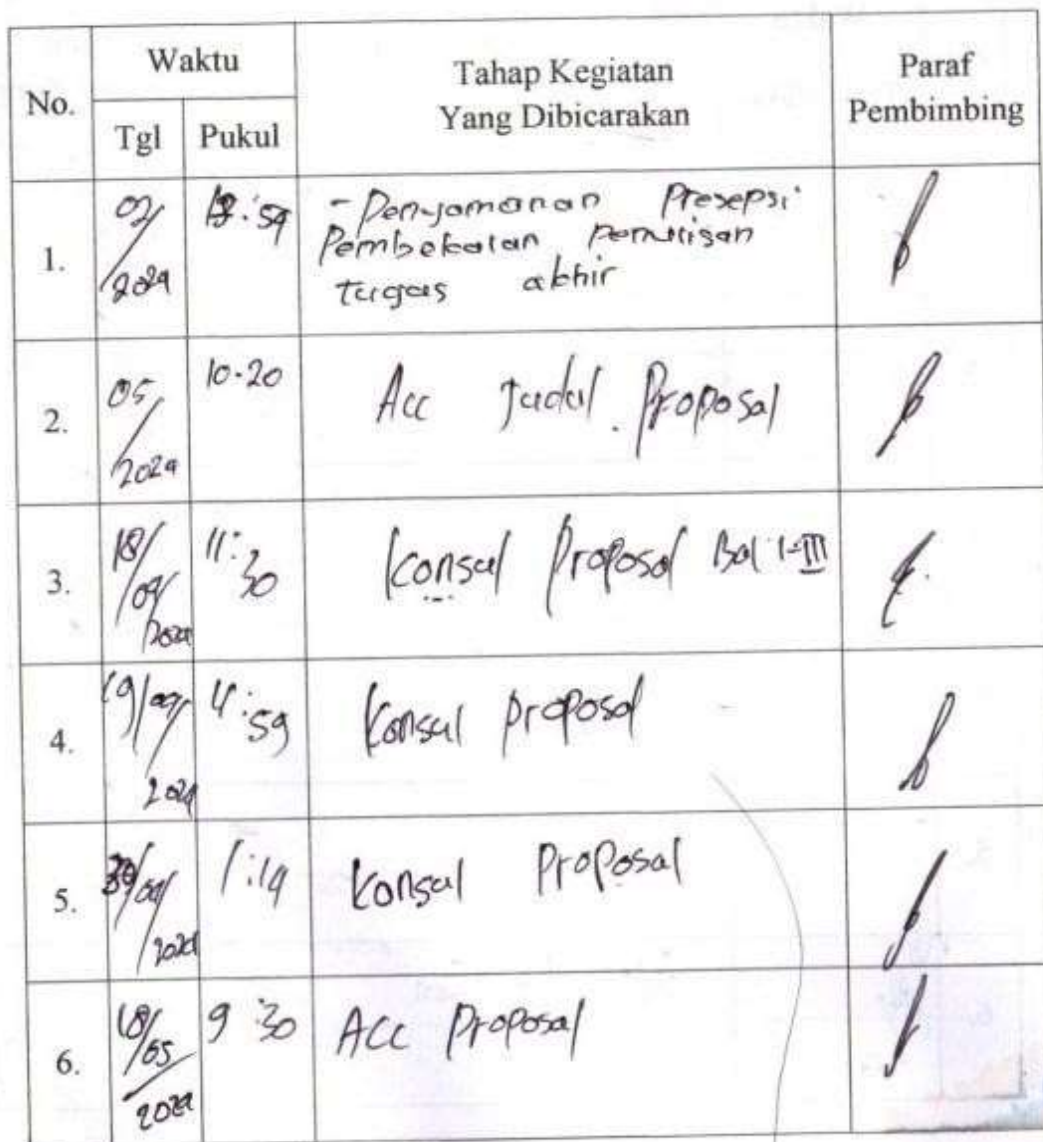 No. Waktu Tahap Kegiatan Yang Dibicarakan Paraf Pembimbing
Tgl Pukul
1. 02/2024 :59 - Penyamanan Presepsi
Pembekalan penulisan
tugas akhir
2. 05/2024 10.20 Acc Judul Proposal
3. 18/04/2024 11:30 Konsul Proposal Bab I-III
4. 19/04/2024 :59 Konsul proposal
5. 30/04/2024 1:14 Konsul Proposal
6. 18/05/2024 9:30 ACC Proposal